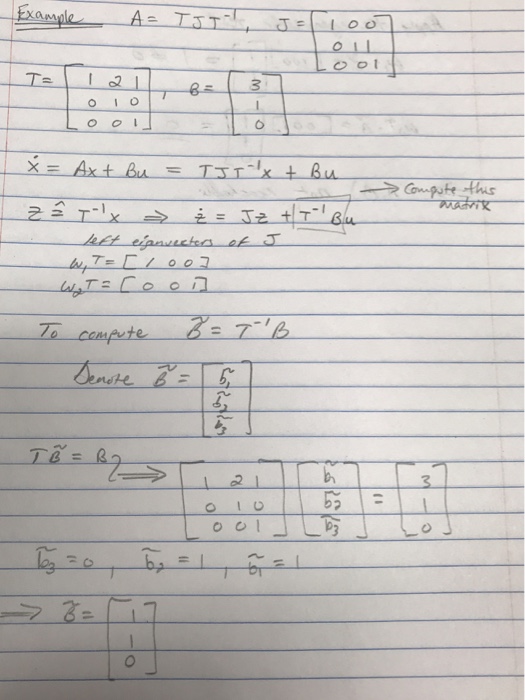 Example A = TJT⁻¹, J = [1 0 0
0 1 1
0 0 1]
T = [1 2 1
0 1 0
0 0 1], B = [3
1
0]
ẋ = Ax + Bu = TJT⁻¹x + Bu
→ Compute this matrix
z ≙ T⁻¹x ⇒ ż = Jz + T⁻¹Bu
left eigenvectors of J
w₁T = [1 0 0]
w₂T = [0 0 1]
To compute B̃ = T⁻¹B
Denote B̃ = [b̃₁
b̃₂
b̃₃]
TB̃ = B ⇒ [1 2 1
0 1 0
0 0 1] [b̃₁
b̃₂
b̃₃] = [3
1
0]
b̃₃ = 0, b̃₂ = 1, b̃₁ = 1
⇒ B̃ = [1
1
0]